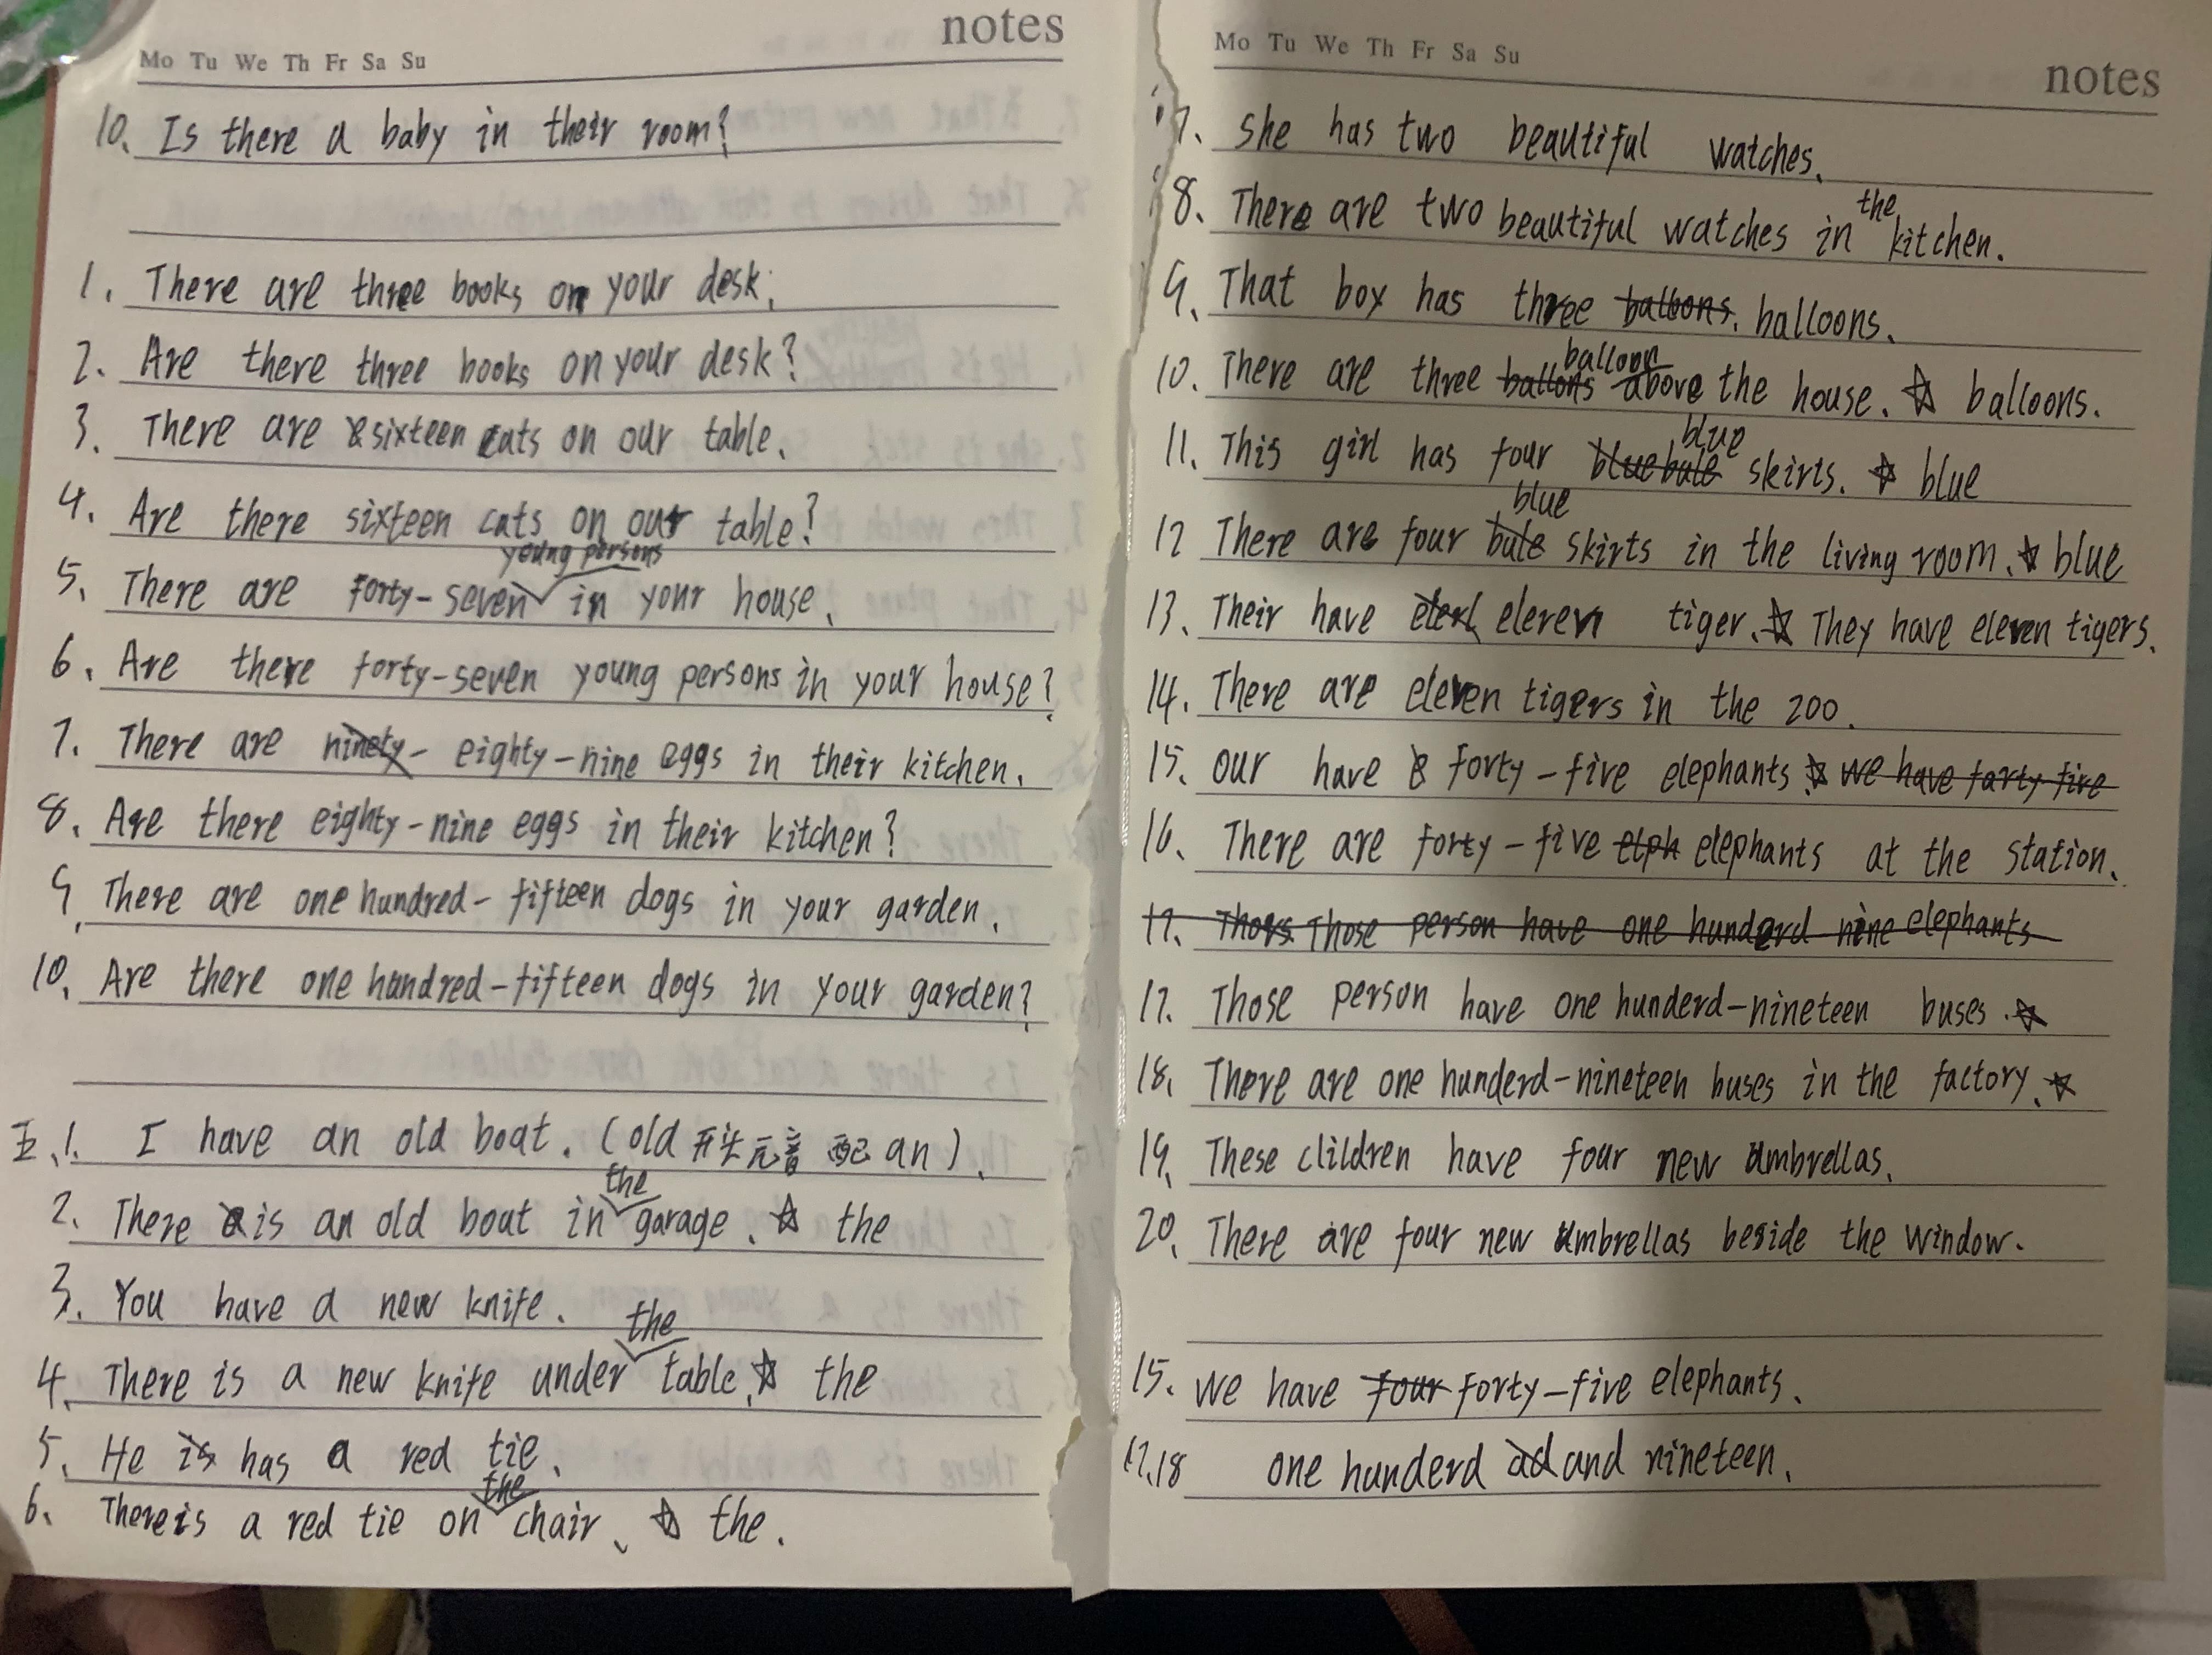 notes
Mo Tu We Th Fr Sa Su
10. Is there a baby in their room?
1. There are three books on your desk.
2. Are there three books on your desk?
3. There are sixteen cats on our table.
4. Are there sixteen cats on our table?
young persons
5. There are forty-seven in your house.
6. Are there forty-seven young persons in your house?
7. There are ninety- eighty-nine eggs in their kitchen.
8. Are there eighty-nine eggs in their kitchen?
9. There are one hundred-fifteen dogs in your garden.
10. Are there one hundred-fifteen dogs in your garden?
五、1. I have an old boat. (old 开头元音 配 an).
the
2. There is an old boat in garage. ☆ the
3. You have a new knife.
the
4. There is a new knife under table. ☆ the
5. He is has a red tie.
the
6. There is a red tie on chair. ☆ the.
Mo Tu We Th Fr Sa Su
notes
7. She has two beautiful watches.
the
8. There are two beautiful watches in kitchen.
9. That box has three balloons. balloons.
balloon
10. There are three ballons above the house. ☆ balloons.
blue
11. This girl has four blue bule skirts. ☆ blue
blue
12 There are four bule skirts in the living room. ☆ blue
13. Their have eleven tiger. ☆ They have eleven tigers.
14. There are eleven tigers in the zoo.
15. our have forty-five elephants ☆ we have farty-five
16. There are forty-five elph elephants at the station.
17. Those person have one hunderd nine elephants
17. Those person have one hunderd-nineteen buses. ☆
18. There are one hunderd-nineteen buses in the factory. ☆
19. These clildren have four new umbrellas.
20. There are four new umbrellas beside the window.
15. We have four forty-five elephants.
17.18 one hunderd ad and nineteen.